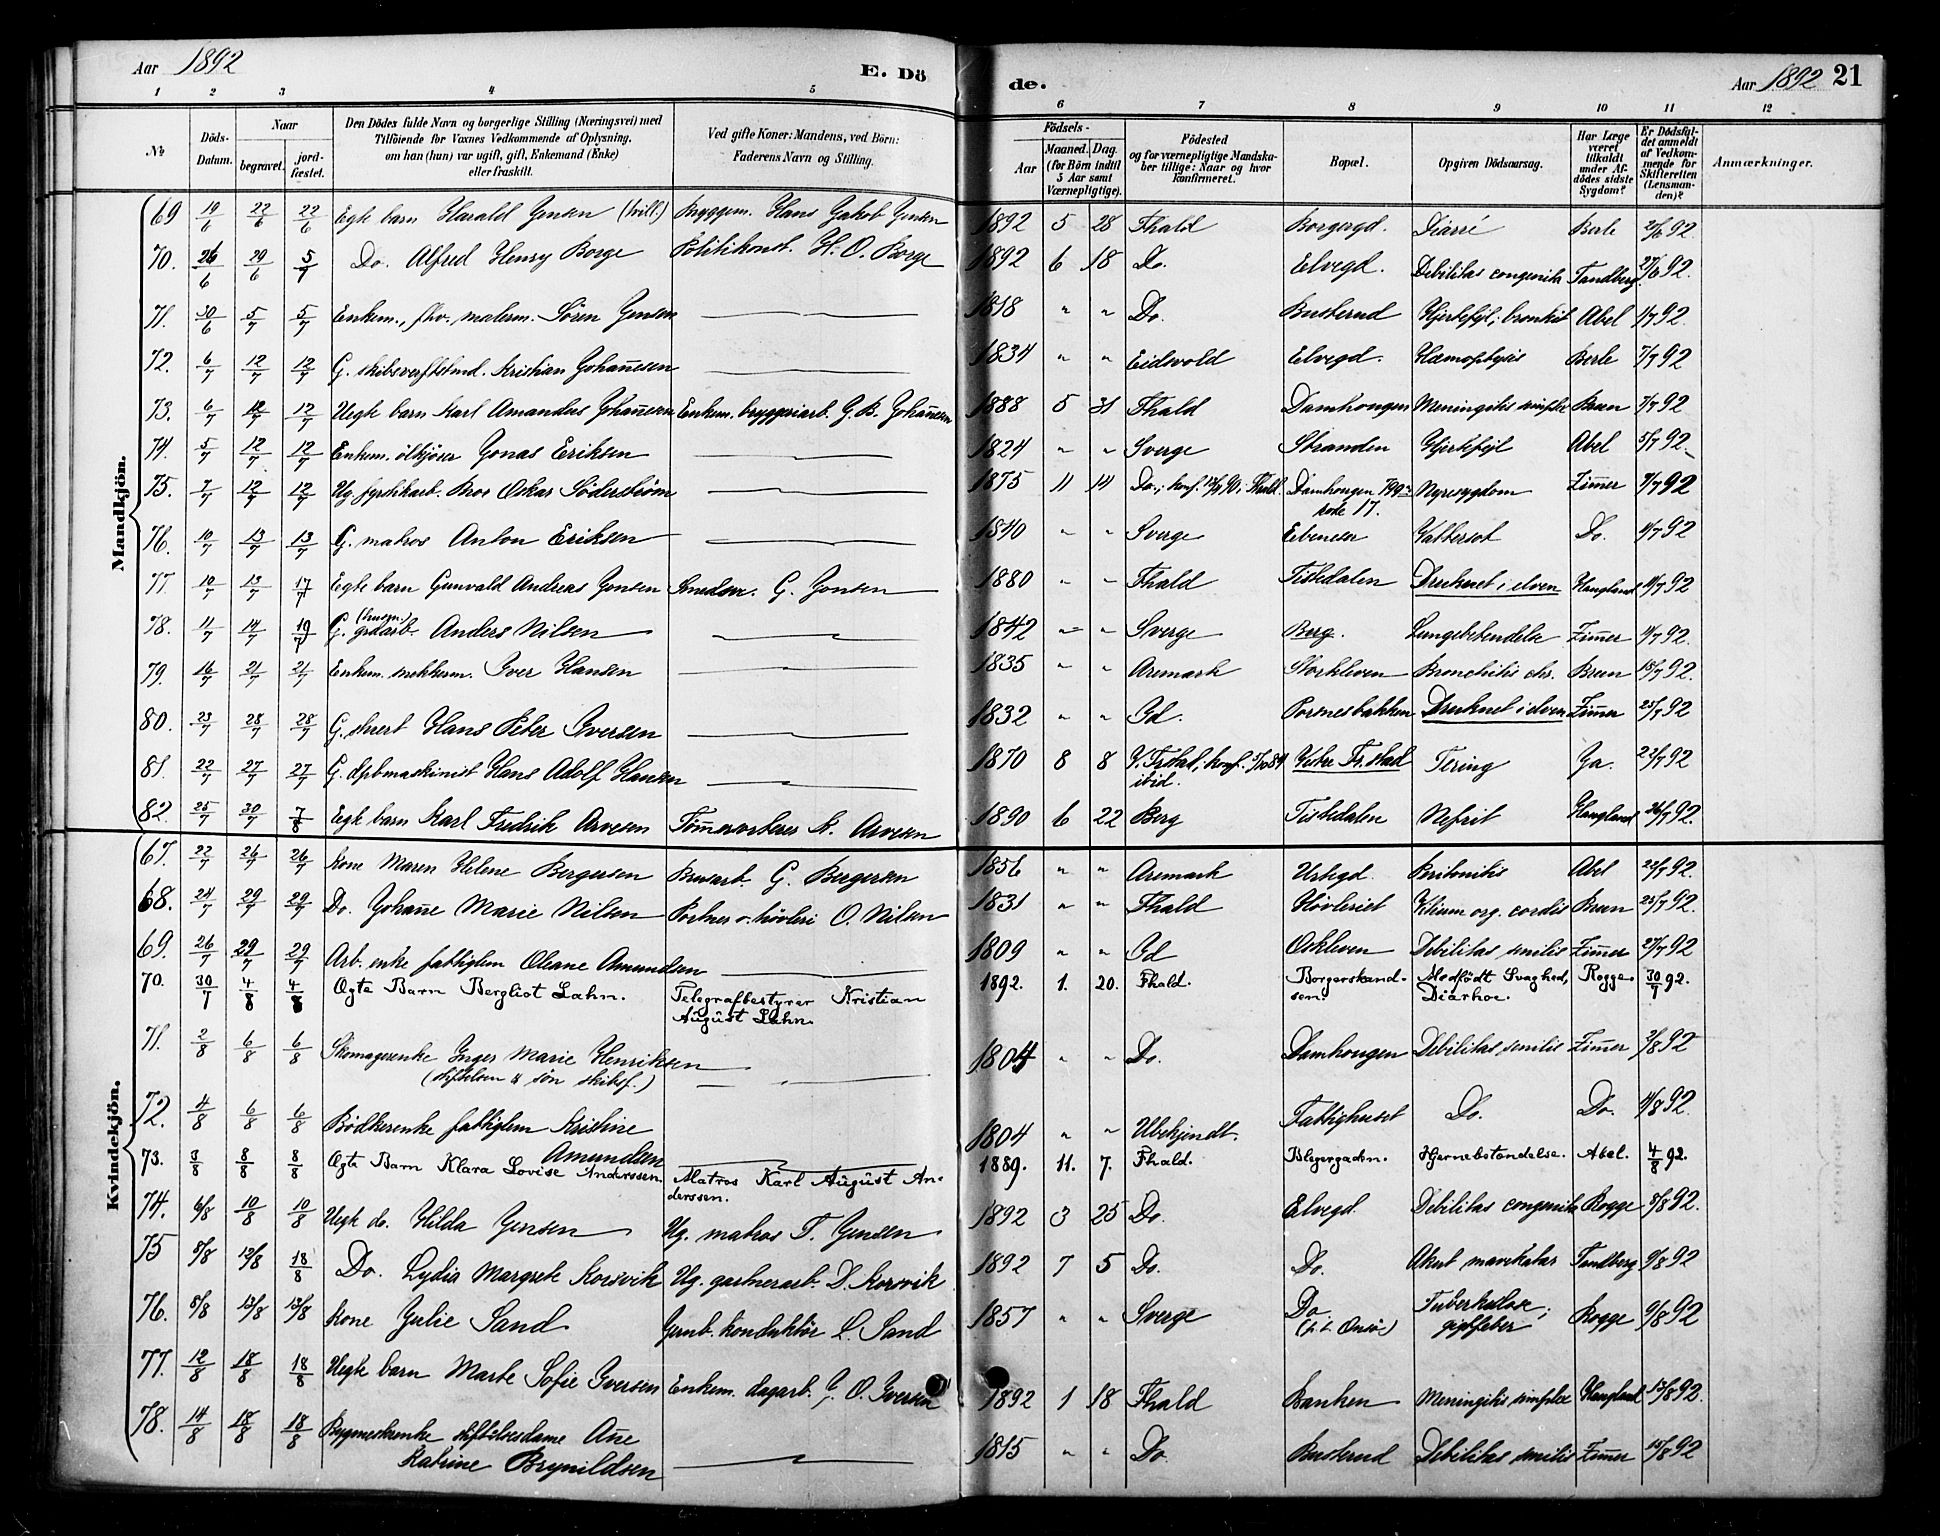 Aar 1892 E. Dö de. Aar 1892 21
1 2 3 4 5 6 7 8 9 10 11 12
№ Döds-Datum. Naar begravet. jord-fæstet. Den Dödes fulde Navn og borgerlige Stilling (Næringsvei) med Tilföiende for Voxnes Vedkommende af Oplysning, om han (hun) var ugift, gift, Enkemand (Enke) eller fraskilt. Ved gifte Koner: Mandens, ved Börn: Faderens Navn og Stilling. Födsels- Aar Maaned. Dag. (for Börn indtil 5 Aar samt Værnepligtige). Födested og for værnepligtige Mandskaber tillige: Naar og hvor konfirmeret. Bopæl. Opgiven Dödsaarsag. Har Læge været tilkaldt under Afdödes sidste Sygdom? Er Dödsfaldet anmeldt af Vedkommende for Skifteretten (Lensmanden)? Anmærkninger.
Mandkjön.
69 19/6 22/6 22/6 Egte barn Harald Jensen (tvill.) Byggem. Hans Jakob Jensen 1892 5 28 Fhald Borgergd. Diarré Berle 92
70. 26/6 29/6 5/7 Do. Alfred Henry Borge Politikonst. H. O. Borge 1892 6 18 Do. Elvegd. Debilitas congenita Tandberg 27/6 92
71. 30/6 5/7 5/7 Enkem., fhv. malerm. Sören Jensen 1818 " " Do. Busterud Hjertefejl; bronkit Abel 1/7 92
72. 6/7 12/7 12/7 G. skibsverftstmd. Kristian Johannesen 1834 " " Eidsvold Elvegd. Hæmoptysis Berle 7/7 92
73. 6/7 12/7 12/7 Uegte barn Karl Amandus Johannesen Enkem. bryggeriarb. G. B. Johannesen 1888 5 31 Fhald Damhougen Meningitis simplex Bruen 7/7 92
74. 5/7 12/7 12/7 Enkem. ölkjörer Jonas Eriksen 1824 " " Sverge Stranden Hjertefejl Abel 5/7 92
75. 7/7 12/7 12/7 Ug. fyrstikarb. Oskar Söderström 1875 11 14 Do.; konf. 90 i Fhald. Damhougen rode 17. Nyresygdom Zimmer 7/7 92
76. 10/7 13/7 13/7 G. matros Anton Eriksen 1840 " " Sverge Ebeneser Vattersot Do. 11/7 92
77. 10/7 13/7 17/7 Egte barn Gunvald Andreas Jonsen Smedsv. G. Jonsen 1880 " " Fhald Tistedalen Druknet i elven Haugland 11/7 92
78. 11/7 14/7 19/7 G. (husm.) grdarb. Anders Nilsen 1842 " " Sverge Berg. Lungebetendelse Zimmer 11/7 92.
79. 16/7 21/7 21/7 Enkem. snekkerm. Iver Hansen 1835 " " Aremark Storkleven Bronchitis chr. Bruen 18/7 92.
80. 23/7 28/7 28/7 G. Hans Peter Iversen 1832 " " Id. Porsnesbakken Druknet i elven Zimmer 25/7 92
81. 22/7 27/7 27/7 G. dpbmaskinist Hans Adolf Hansen 1870 8 8 V. Frstad, konf. ibid. Vestre Fr.stad Tering Ja. 22/7 92
82. 25/7 30/7 7/8 Egte barn Karl Fredrik Arvesen Tömmersorterer A. Arvesen 1890 6 22 Berg Tistedalen Nefrit Haugland 26/7 92.
Kvindekjön.
67. 22/7 26/7 26/7 Kone Maren Helene Bergersen Brusarb. G. Bergersen 1856 " " Aremark Urtegd. Peritonitis Abel 22/7 92.
68. 24/7 29/7 29/7 Do. Johanne Marie Nilsen Portner v. hövleri O. Nilsen 1831 " " Fhald Hövleriet Vitium org. cordis Bruen 25/7 92.
69. 26/7 29/7 29/7 Arb. enke fattiglem Oleane Amundsen 1809 " " Id Oskleven Debilitas senilis Zimmer 27/7 92
70. 30/7 4/8 4/8 Ægte Barn Bergliot Lahn. Telegrafbestyrer Kristian August Lahn. 1892. 1. 20. Fhald. Borgerskandsen. Medfödt Svaghed, Diarhoe. Rogge 30/7 92.
71. 2/8 6/8 6/8 Skomagerenke Inger Marie Henriksen (stiftelsen) 1804 " " Do. Damhougen Debilitas senilis Zimmer 3/8 92
72. 4/8 6/8 6/8 Bödkerenke fattiglem Kristine Amundsen 1804 " " Ubekjendt. Fattighuset Do. Do. 4/8 92.
73. 3/8 8/8 8/8 Ægte Barn Klara Lovise Anderssen. Matros Karl August Anderssen. 1889. 11. 7. Fhald. Blegergaden. Hjernebetændelse. Abel. 4/8 92.
74. 6/8 10/8 10/8 Uegte do. Hilda Jensen Ug. matros T. Jensen 1892 3 25 Do. Elvegd. Debilitas congenita Rogge 8/8 92.
75 8/8 12/8 18/8 Do. Lydia Margrete Korsvik Ug. gartnerarb. D. Korsvik 1892 7 5 Do. Do. Akut mavekatar Tandberg 9/8 92
76. 8/8 13/8 13/8 Kone Julie Sand Jernb. konduktör L. Sand 1857 " " Sverge Do. (p. t. Onsö) Tuberkulose; giftfeber Rogge 9/8 92
77. 12/8 18/8 18/8 Uegte barn Marte Sofie Iversen Enkem. dagarb. J. O. Iversen 1892 1 18 Fhald Banken Meningitis simplex Haugland 13/8 92.
78. 14/8 18/8 18/8 Bygmesterenke stiftelsesdame Ane Katrine Brynildsen 1815 " " Do. Busterud Debilitas senilis Zimmer 15/8 92